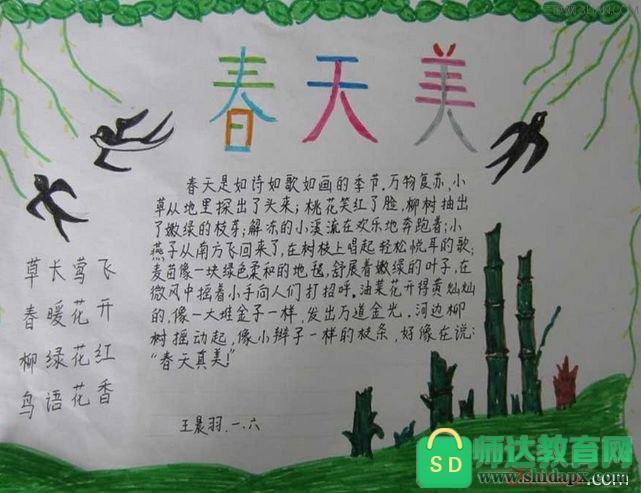 春天美
春天是如诗如歌如画的季节,万物复苏,小
草从地里探出了头来;桃花笑红了脸,柳树抽出
了嫩绿的枝芽;解冻的小溪流在欢乐地奔跑着;小
燕子从南方飞回来了,在树枝上唱起轻松悦耳的歌;
麦苗像一块绿色柔和的地毯,舒展着嫩绿的叶子,在
微风中摇着小手向人们打招呼。油菜花开得黄灿灿
的,像一大堆金子一样,发出万道金光。河边柳
树摇动起,像小辫子一样的枝条,好像在说:
“春天真美!”
王晨羽.一.六
草长莺飞
春暖花开
柳绿花红
鸟语花香
SD
师达教育网
www.shidapx.com